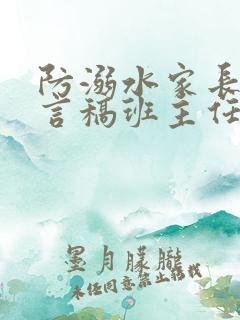 防溺水家长
言稿班主任
墨月朦胧
未任同意禁止转载